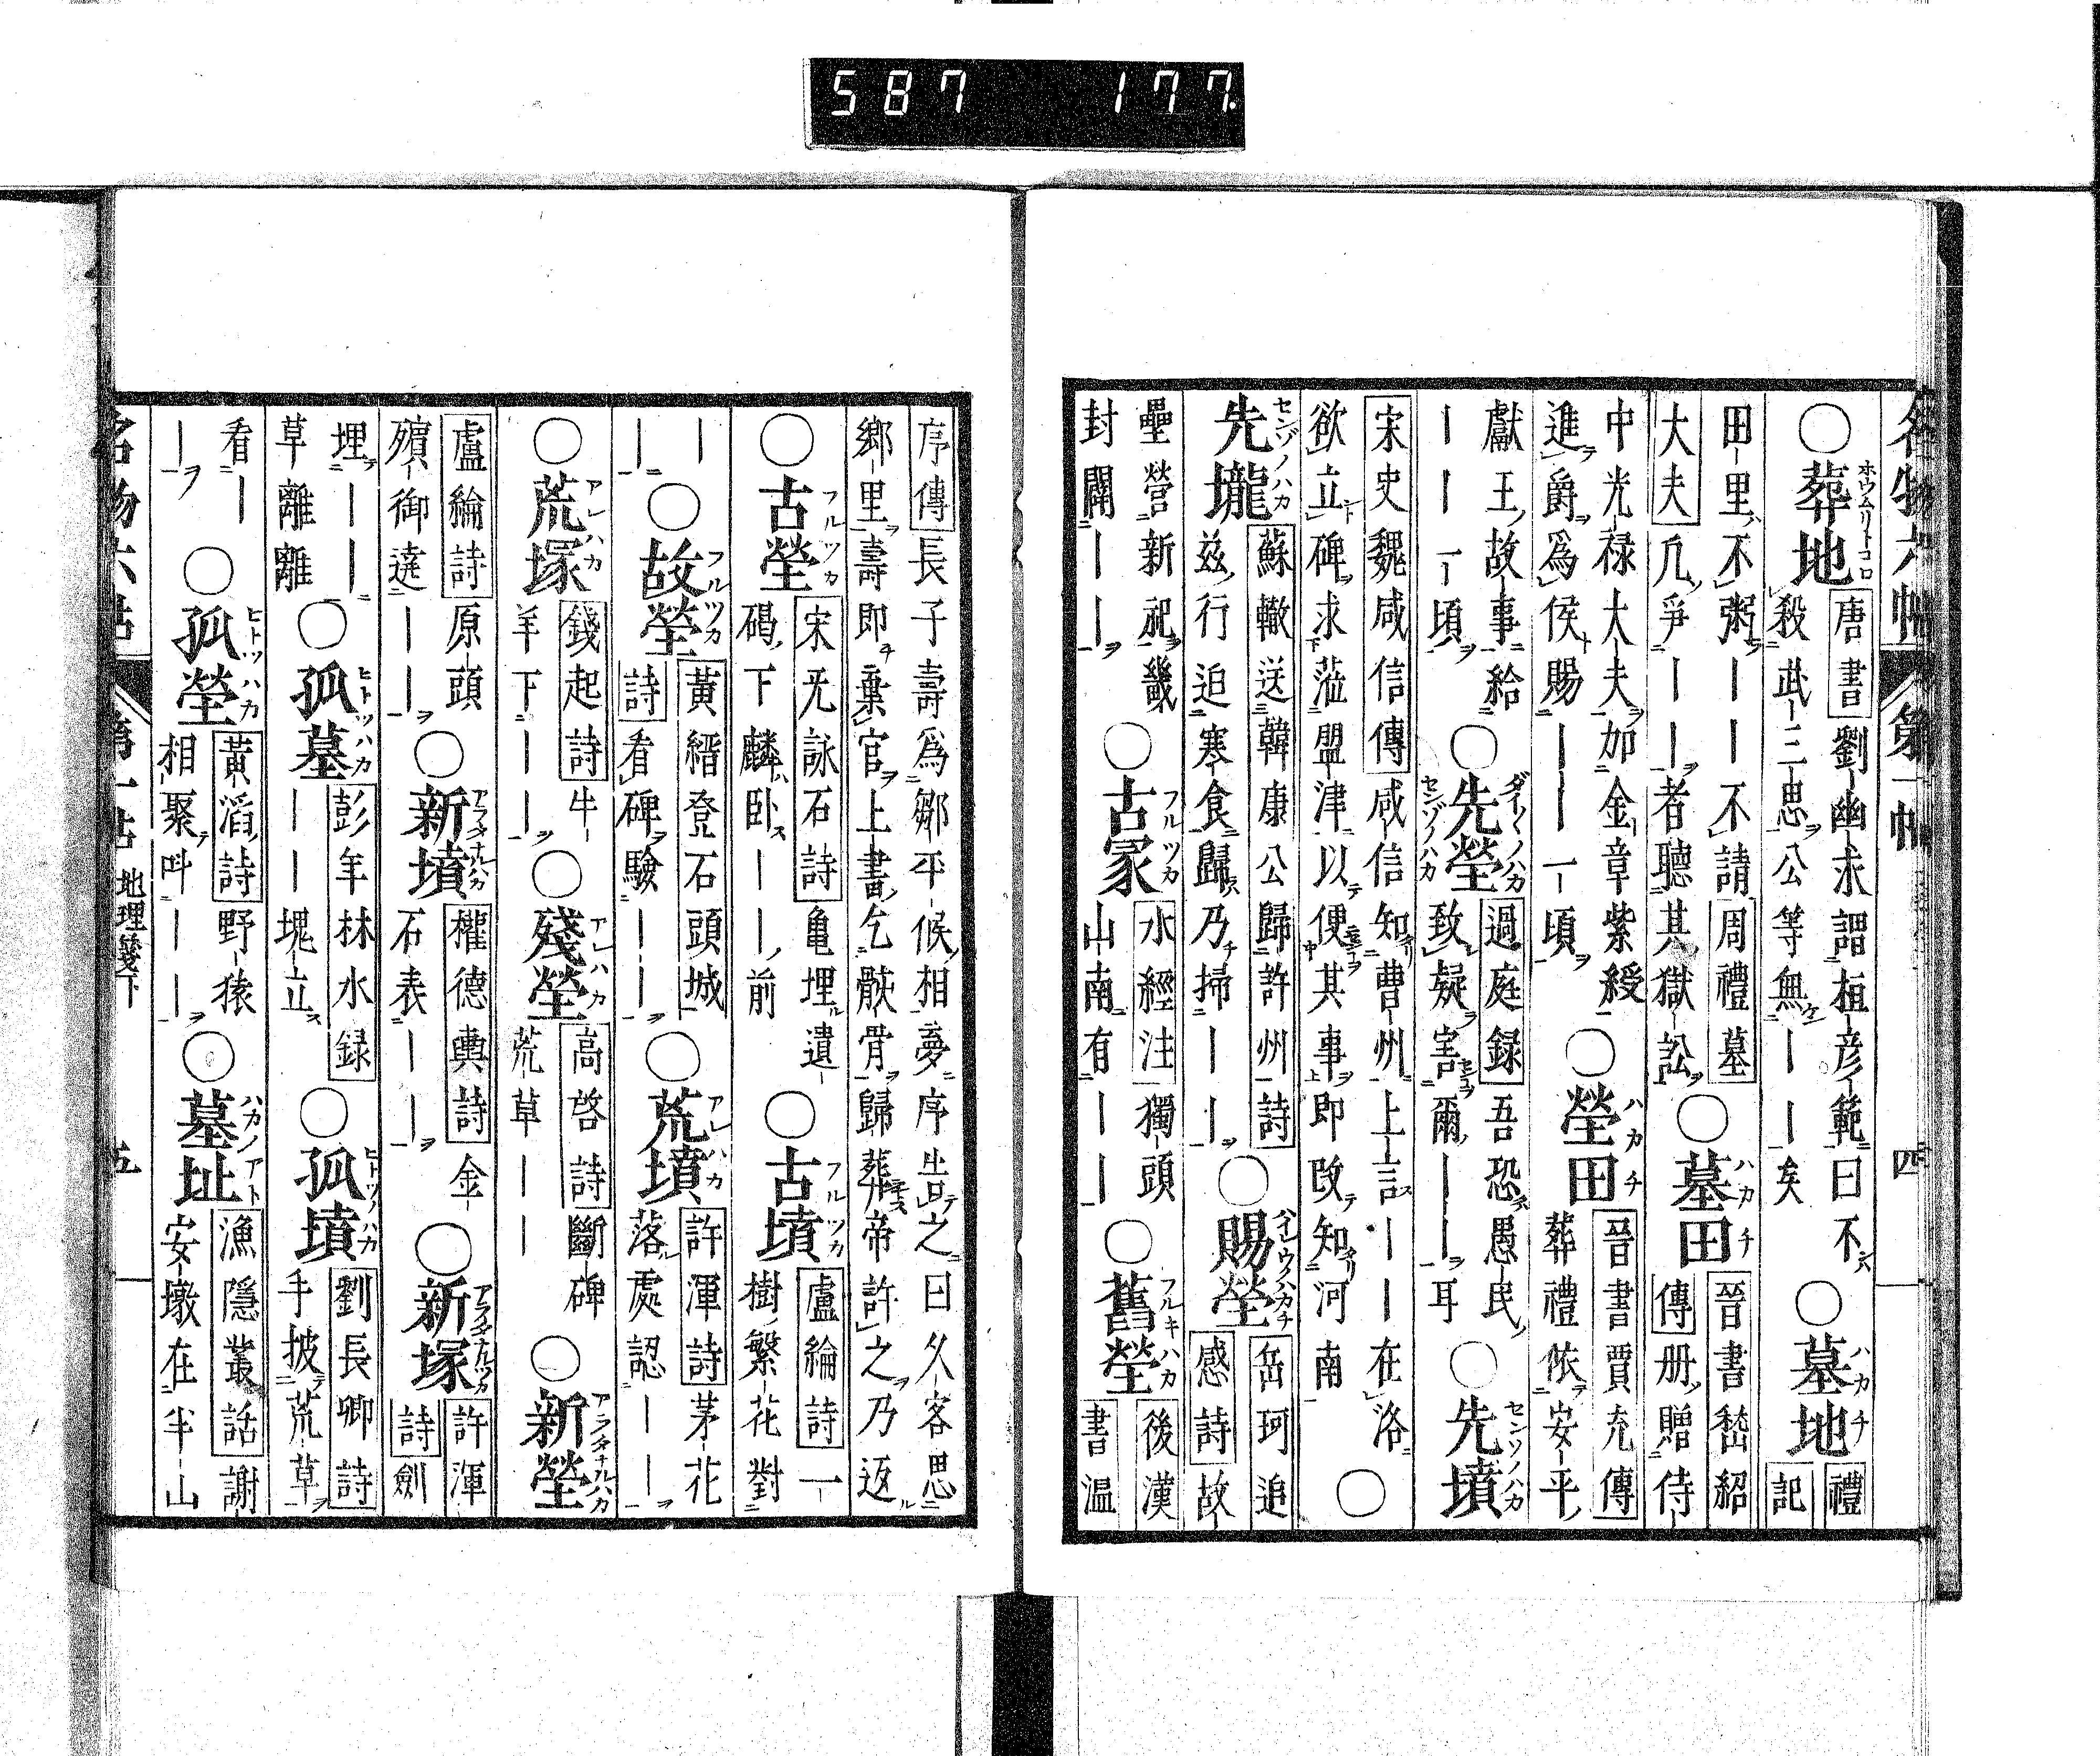 587 177
名物六帖 第一帖 四
○葬地 唐書 劉幽求謂桓彥範曰不殺武三思公等無——矣 ○墓地 禮記
田里不粥——不請 周禮墓大夫 凡爭——者聽其獄訟 ○墓田 晉書嵇紹傳 册贈侍
中光禄大夫加金章紫綬進爵爲侯賜——一頃 ○塋田 晉書賈充傳 葬禮依安平
獻王故事給——一頃 ○先塋 過庭録 吾恐愚民致疑害爾——耳 ○先墳
宋史魏咸信傳 咸信知曹州上言——在洛欲立碑求涖盟津以便其事即改知河南 ○
先壠 蘇轍送韓康公歸許州詩 茲行迫寒食歸乃掃—— ○賜塋 岳珂追感詩 故
壘營新祀畿封闢—— ○古冢 水經注 獨頭山南有—— ○舊塋 後漢書温
序傳 長子壽爲鄒平候相夢序告之曰久客思鄉里壽即棄官上書乞骸骨歸葬帝許之乃返
○古塋 宋旡詠石詩 亀埋遺碣下麟卧——前 ○古墳 盧綸詩 一樹繁花對
—— ○故塋 黃縉登石頭城詩 看碑驗—— ○荒墳 許渾詩 茅花落處認——
○荒塚 錢起詩 牛羊下—— ○殘塋 高啓詩 斷碑荒草—— ○新塋
盧綸詩 原頭殯御遶—— ○新墳 權德輿詩 金石表—— ○新塚 許渾詩 劍
埋——草離離 ○孤墓 彭年林水録 ——塊立 ○孤墳 劉長卿詩 手披荒草
看—— ○孤塋 黃滔詩 野猿相聚叫—— ○墓址 漁隱叢話 謝安墩在半山
名物六帖 第一帖 地理箋下 五